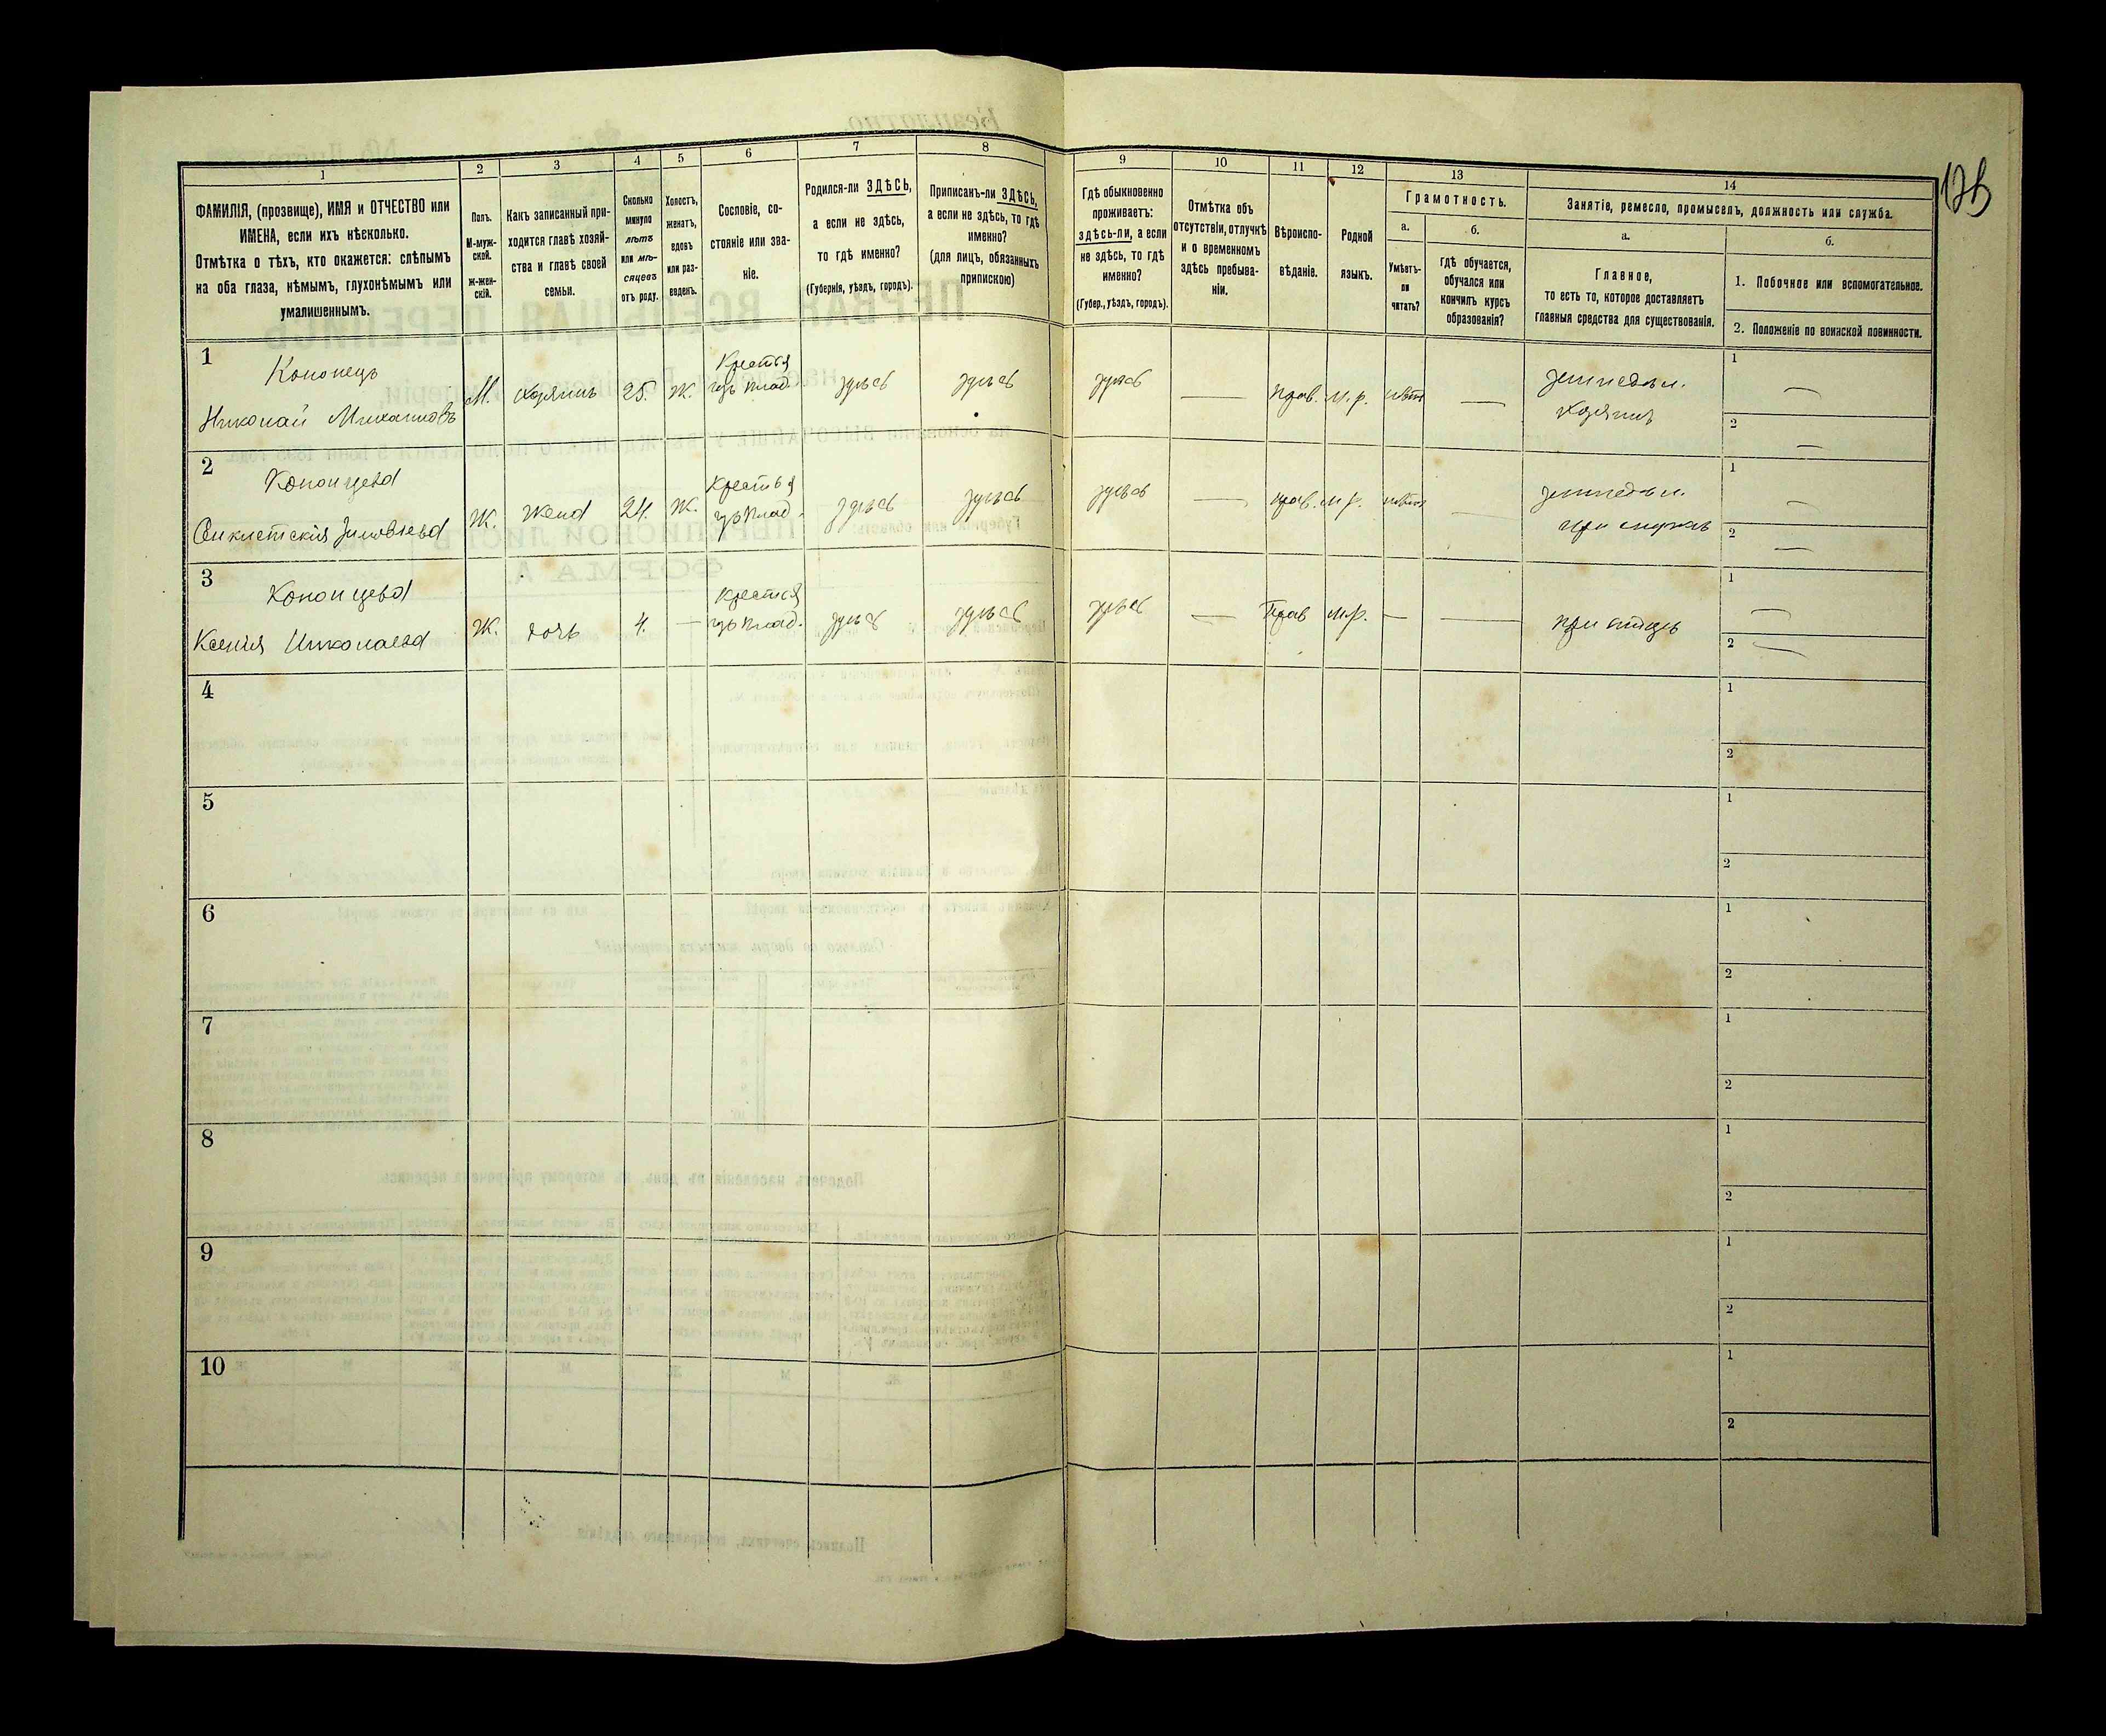 1
2
3
4
5
6
7
8
9
10
11
12
13
14
ФАМИЛІЯ, (прозвище), ИМЯ и ОТЧЕСТВО или
ИМЕНА, если ихъ нѣсколько.
Отмѣтка о тѣхъ, кто окажется: слѣпымъ
на оба глаза, нѣмымъ, глухонѣмымъ или
умалишеннымъ.
Полъ.
М-муж-
ской.
Ж-жен-
скій.
Какъ записанный при-
ходится главѣ хозяй-
ства и главѣ своей
семьи.
Сколько
минуло
лѣтъ
или мѣ-
сяцевъ
отъ роду.
Холостъ,
женатъ,
вдовъ
или раз-
веденъ.
Сословіе, со-
стояніе или зва-
ніе.
Родился-ли ЗДѢСЬ,
а если не здѣсь,
то гдѣ именно?
(Губернія, уѣздъ, городъ).
Приписанъ-ли ЗДѢСЬ,
а если не здѣсь, то гдѣ
именно?
(для лицъ, обязанныхъ
припискою)
Гдѣ обыкновенно
проживаетъ:
здѣсь-ли, а если
не здѣсь, то гдѣ
именно?
(Губер., уѣздъ, городъ).
Отмѣтка объ
отсутствіи, отлучкѣ
и о временномъ
здѣсь пребыва-
ніи.
Вѣроиспо-
вѣданіе.
Родной
языкъ.
Грамотность.
а.
Умѣетъ-
ли
читать?
б.
гдѣ обучается,
обучался или
кончилъ курсъ
образованія?
Занятіе, ремесло, промыселъ, должность или служба.
а.
Главное,
то есть то, которое доставляетъ
главныя средства для существованія.
б.
1. Побочное или вспомогательное.
2. Положеніе по воинской повинности.
1
Кононецъ
Николай Михаиловъ
М. Хозяинъ 25. Ж. Крестья изъ влад. здѣсь здѣсь здѣсь — Прав. М. р. нѣтъ — земледѣл. хозяинъ
1 —
2 —
2
Кононцева
Яковлева
Ж. Жена 24. Ж. Крестья изъ влад. здѣсь здѣсь здѣсь — прав. М. р. нѣтъ — земледѣл. при мужѣ
1 —
2 —
3
Кононцева
Ксенія Николаева
Ж. дочь 4. — Крестья изъ влад. здѣсь здѣсь здѣсь — Прав М.р. — — при отцѣ
1 —
2 —
4
1
2
5
1
2
6
1
2
7
1
2
8
1
2
9
1
2
10
1
2